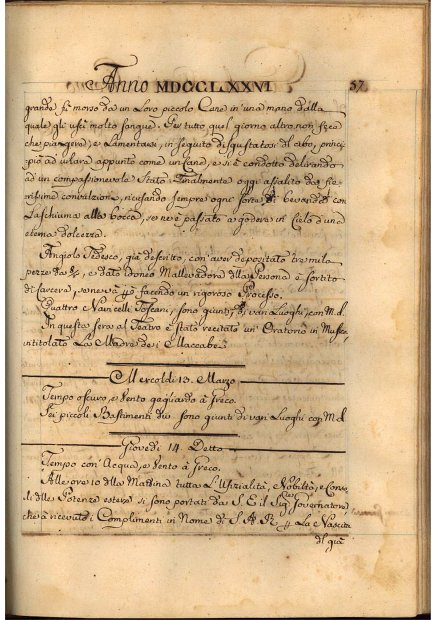 Anno MDCCLXXVI 57
grande fù morso da un Loro piccolo Cane in una mano dalla
quale gli uscì molto sangue. Per tutto quel giorno altro non fece
che piangere, e Lamentarsi, in seguito disgustatosi del cibo, princi-
piò ad urlare appunto come un Cane, e si è condotto delirando
ad un compassionevole Stato. Finalmente oggi assalito da fie-
rissime convulzioni, ricusando sempre ogni sorte di bevanda con
La schiuma alla bocca, se ne è passato a godere in Cielo d'una
eterna dolcezza.
Angiolo Tedesco, già descritto, con aver depositato tre mila
pezze da 8/r, e dato idoneo Mallevadore dlla Persona è sortito
di carcere, se ne và facendo un rigoroso Processo.
Quattro Navicelli Toscani, sono giunti, di vari Luoghi, con M.d.
In questa sera al Teatro è stato recitato un Oratorio in Musica
intitolato La Madre de i Maccabei.
Mercoldi 13. Marzo
Tempo oscuro, e Vento gagliardo à Greco.
Sei piccoli Bastimenti sono giunti di vari Luoghi con M.d.
Giovedì 14 Detto
Tempo con Acqua, e Vento à Greco.
Alle ore 10 dlla Mattina tutta L'Ufizialità, Nobiltà, e Conso-
li dlle Potenze estere si sono portati da S. E. il Sig.re Governatore
che à ricevuto i Complimenti in Nome di S. A. R. La Nascita
dl già